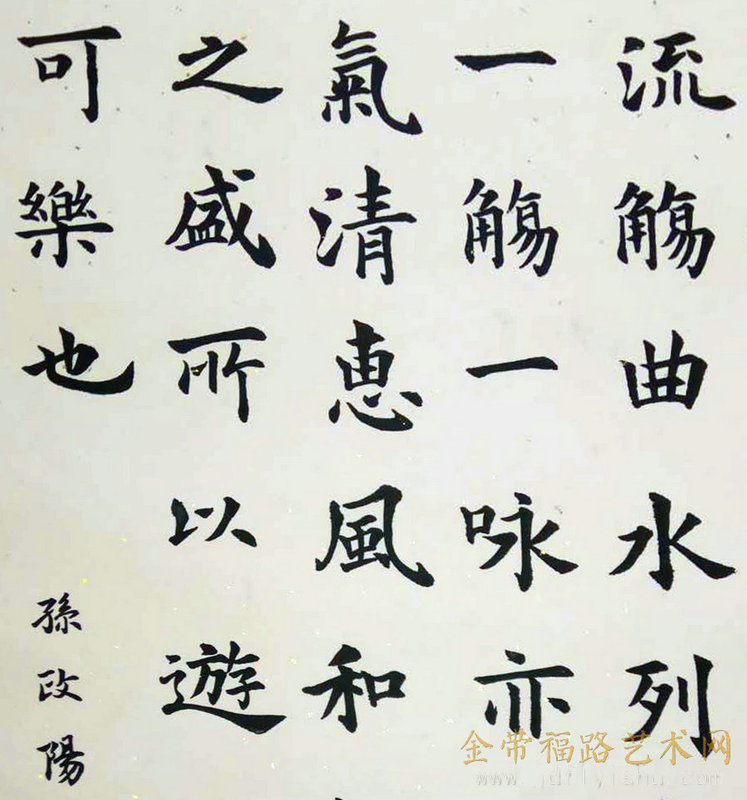 流觴曲水列
一觴一咏亦
氣清惠風和
之盛所以遊
可樂也
孫政陽
金带福路艺术网
www.jdflyishu.com